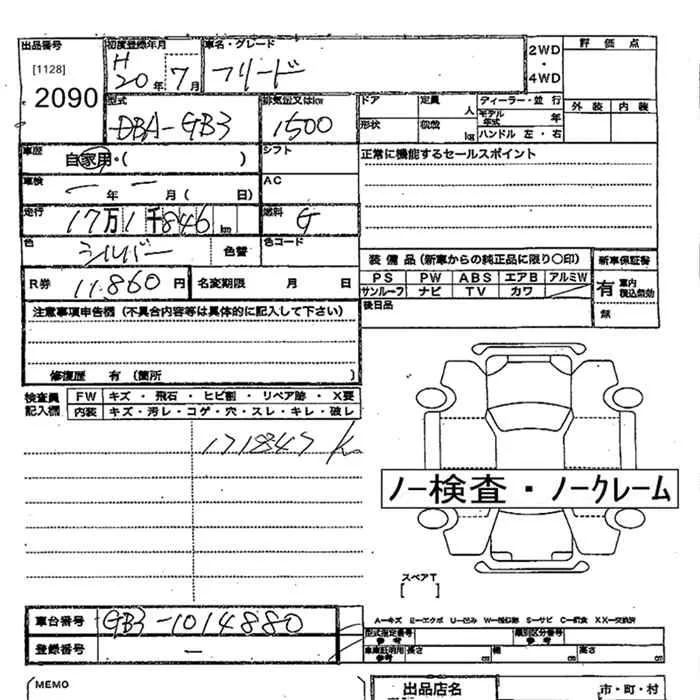 出品番号
[1128]
2090
初度登録年月
H20年7月
車名・グレード
フリード
2WD・4WD
評価点
外装 内装
型式
DBA-GB3
排気量又はkw
1500
ドア
定員 人
形状
積載 kg
ディーラー・並行
モデル年式 年
ハンドル 左・右
車歴
自家用・( )
シフト
正常に機能するセールスポイント
車検
ー年ー月( 日)
AC
走行
17万1千846km
燃料
G
色
シルバー
色替
色コード
装備品(新車からの純正品に限り〇印)
新車保証書
PS PW ABS エアB アルミW
サンルーフ ナビ TV カワ
有 車内 積込有効
無
後日品
R券
11,860円
名変期限 月 日
注意事項申告欄(不具合内容等は具体的に記入して下さい)
修復歴 有(箇所 )
検査員記入欄
FW キズ・飛石・ヒビ割・リペア跡・X要
内装 キズ・汚レ・コゲ・穴・スレ・キレ・破レ
171847K
ノー検査・ノークレーム
スペアT
[ ]
車台番号
GB3-1014880
登録番号
ー
A-キズ E-エクボ U-凹み W-補修跡 S-サビ C-腐食 XX-交換済
型式指定番号 参考
類別区分番号 参考
車庫証明用 参考
長さ cm 幅 cm 高さ cm
MEMO
出品店名
市・町・村